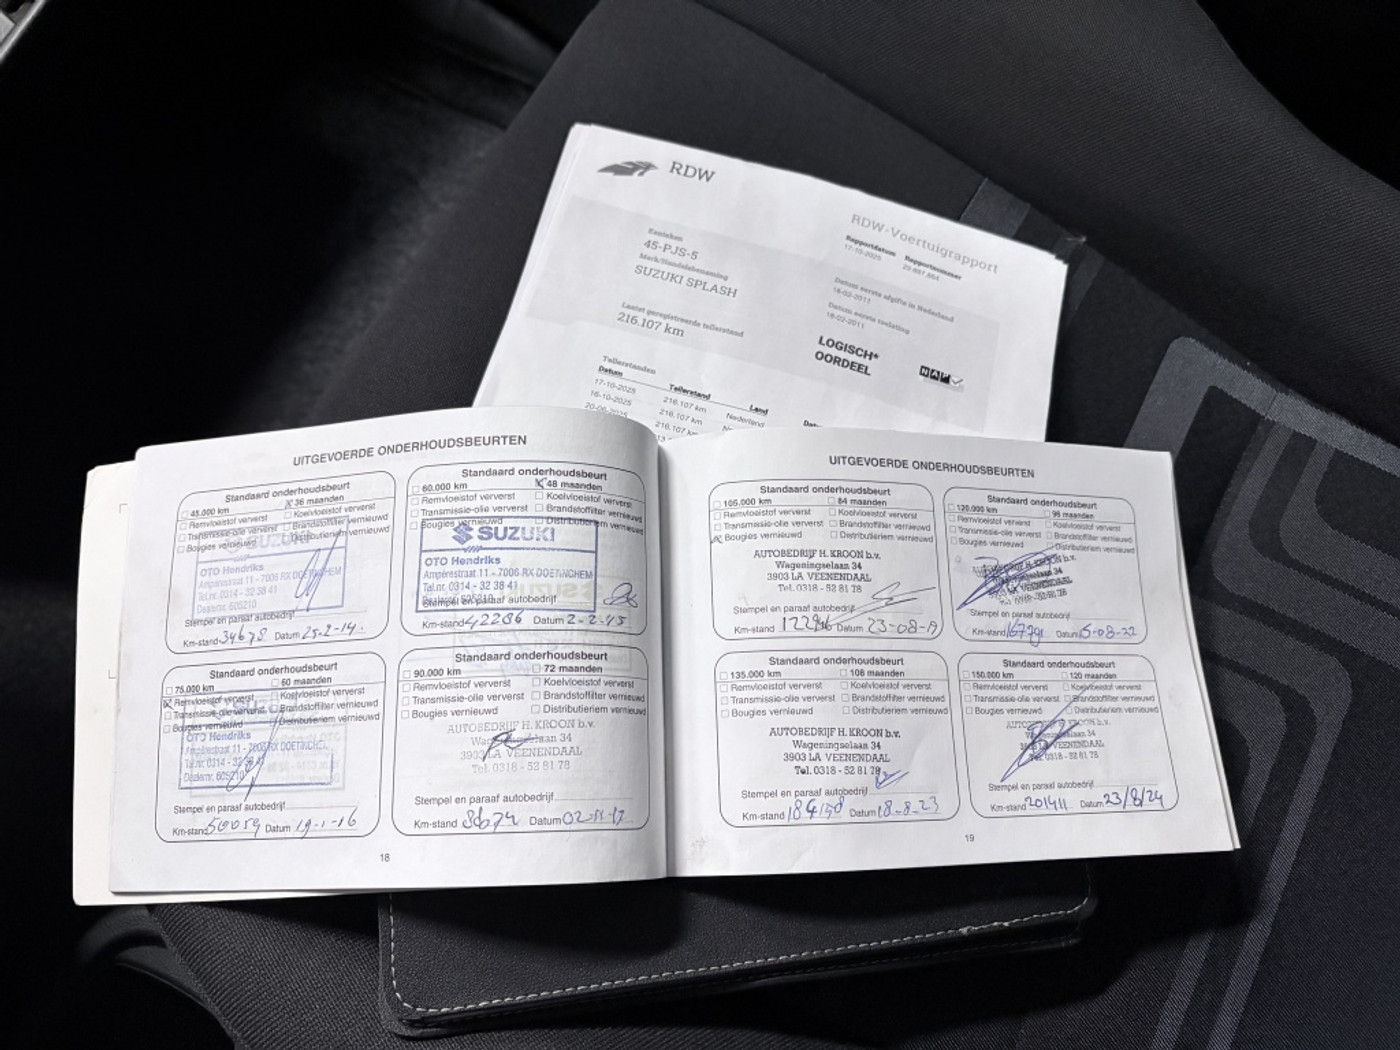 RDW
RDW-Voertuigrapport
Kenteken
45-PJS-5
Merk/Handelsbenaming
SUZUKI SPLASH
Laatst geregistreerde tellerstand
216.107 km
Rapportdatum Rapportnummer
17-10-2025
Datum eerste afgifte in Nederland
18-02-2011
Datum eerste toelating
18-02-2011
LOGISCH*
OORDEEL
NAP
Tellerstanden
Datum Tellerstand Land
17-10-2025 216.107 km Nederland
16-10-2025 216.107 km
216.107 km
UITGEVOERDE ONDERHOUDSBEURTEN
Standaard onderhoudsbeurt
45.000 km 36 maanden
Remvloeistof ververst Koelvloeistof ververst
Transmissie-olie ververst Brandstoffilter vernieuwd
Bougies vernieuwd Distributieriem vernieuwd
SUZUKI
OTO Hendriks
Ampèrestraat 11 - 7006 RX DOETINCHEM
Tel.nr. 0314 - 32 38 41
Dealernr. 605210
Stempel en paraaf autobedrijf
Km-stand 34678 Datum 25-2-14.
Standaard onderhoudsbeurt
60.000 km 48 maanden
Remvloeistof ververst Koelvloeistof ververst
Transmissie-olie ververst Brandstoffilter vernieuwd
Bougies vernieuwd Distributieriem vernieuwd
SUZUKI
OTO Hendriks
Ampèrestraat 11 - 7006 RX DOETINCHEM
Tel.nr. 0314 - 32 38 41
Dealernr. 605210
Stempel en paraaf autobedrijf
Km-stand 42286 Datum 2-2-15
Standaard onderhoudsbeurt
75.000 km 60 maanden
Remvloeistof ververst Koelvloeistof ververst
Transmissie-olie ververst Brandstoffilter vernieuwd
Bougies vernieuwd Distributieriem vernieuwd
OTO Hendriks
Ampèrestraat 11 - 7006 RX DOETINCHEM
Tel.nr. 0314 - 32 38 41
Dealernr. 605210
Stempel en paraaf autobedrijf
Km-stand 50059 Datum 19-1-16
Standaard onderhoudsbeurt
90.000 km 72 maanden
Remvloeistof ververst Koelvloeistof ververst
Transmissie-olie ververst Brandstoffilter vernieuwd
Bougies vernieuwd Distributieriem vernieuwd
AUTOBEDRIJF H. KROON b.v.
Wageningselaan 34
3903 LA VEENENDAAL
Tel. 0318 - 52 81 78
Stempel en paraaf autobedrijf
Km-stand Datum 02-11-17
18
UITGEVOERDE ONDERHOUDSBEURTEN
Standaard onderhoudsbeurt
105.000 km 84 maanden
Remvloeistof ververst Koelvloeistof ververst
Transmissie-olie ververst Brandstoffilter vernieuwd
Bougies vernieuwd Distributieriem vernieuwd
AUTOBEDRIJF H. KROON b.v.
Wageningselaan 34
3903 LA VEENENDAAL
Tel. 0318 - 52 81 78
Stempel en paraaf autobedrijf
Km-stand Datum 23-08-19
Standaard onderhoudsbeurt
120.000 km 96 maanden
Remvloeistof ververst Koelvloeistof ververst
Transmissie-olie ververst Brandstoffilter vernieuwd
Bougies vernieuwd Distributieriem vernieuwd
Stempel en paraaf autobedrijf
Km-stand Datum 15-08-22
Standaard onderhoudsbeurt
135.000 km 108 maanden
Remvloeistof ververst Koelvloeistof ververst
Transmissie-olie ververst Brandstoffilter vernieuwd
Bougies vernieuwd Distributieriem vernieuwd
AUTOBEDRIJF H. KROON b.v.
Wageningselaan 34
3903 LA VEENENDAAL
Tel. 0318 - 52 81 78
Stempel en paraaf autobedrijf
Km-stand 184158 Datum 18-8-23
Standaard onderhoudsbeurt
150.000 km 120 maanden
Remvloeistof ververst Koelvloeistof ververst
Transmissie-olie ververst Brandstoffilter vernieuwd
Bougies vernieuwd Distributieriem vernieuwd
AUTOBEDRIJF H. KROON b.v.
Wageningselaan 34
3903 LA VEENENDAAL
Tel. 0318 - 52 81 78
Stempel en paraaf autobedrijf
Km-stand 201411 Datum 23/8/24
19